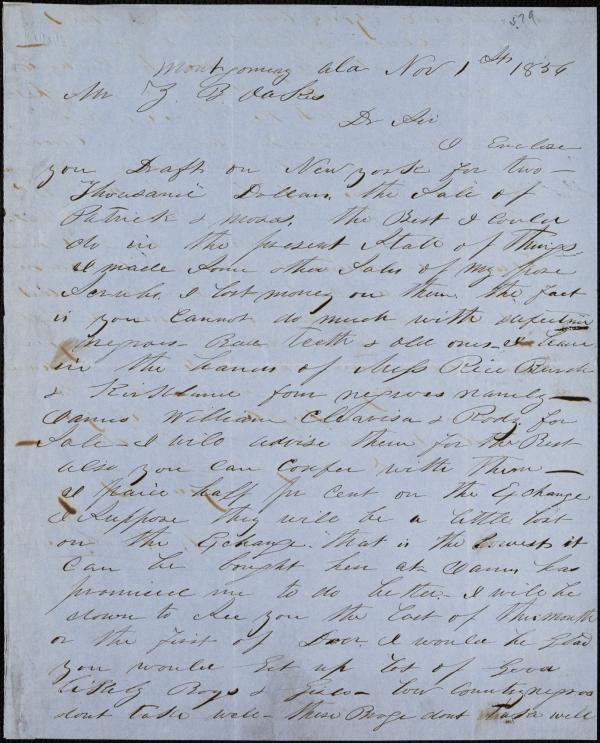 579
Montgomery Ala Nov 1st 1856
Mr Z B Oakes
Dr Sir
I Enclose
you Draft on New york for two
Thousand Dollars. the Sale of
Patrick & Moses. the Best I could
do in the present State of Things
I made Some other Sales of my
Scrubs. I lost money on them the fact
is you cannot do much with defective
negroes Bad teeth & old ones I leave
in the hands of Mess Rice
& four negroes namely
James William Clarisa & Rody for
Sale I will advise them for the Best
also you can Confer with them
I paid half pr cent on the Exchange
I Suppose they will be a little lost
on the Exchange. that is the lowest it
can be bought here at James has
promised me to do better I will be
down to See you the last of this month
or the first of Decr I would be glad
you would Get up Lot of Good
likely Boys & Girls low country negros
dont take well these dont take well